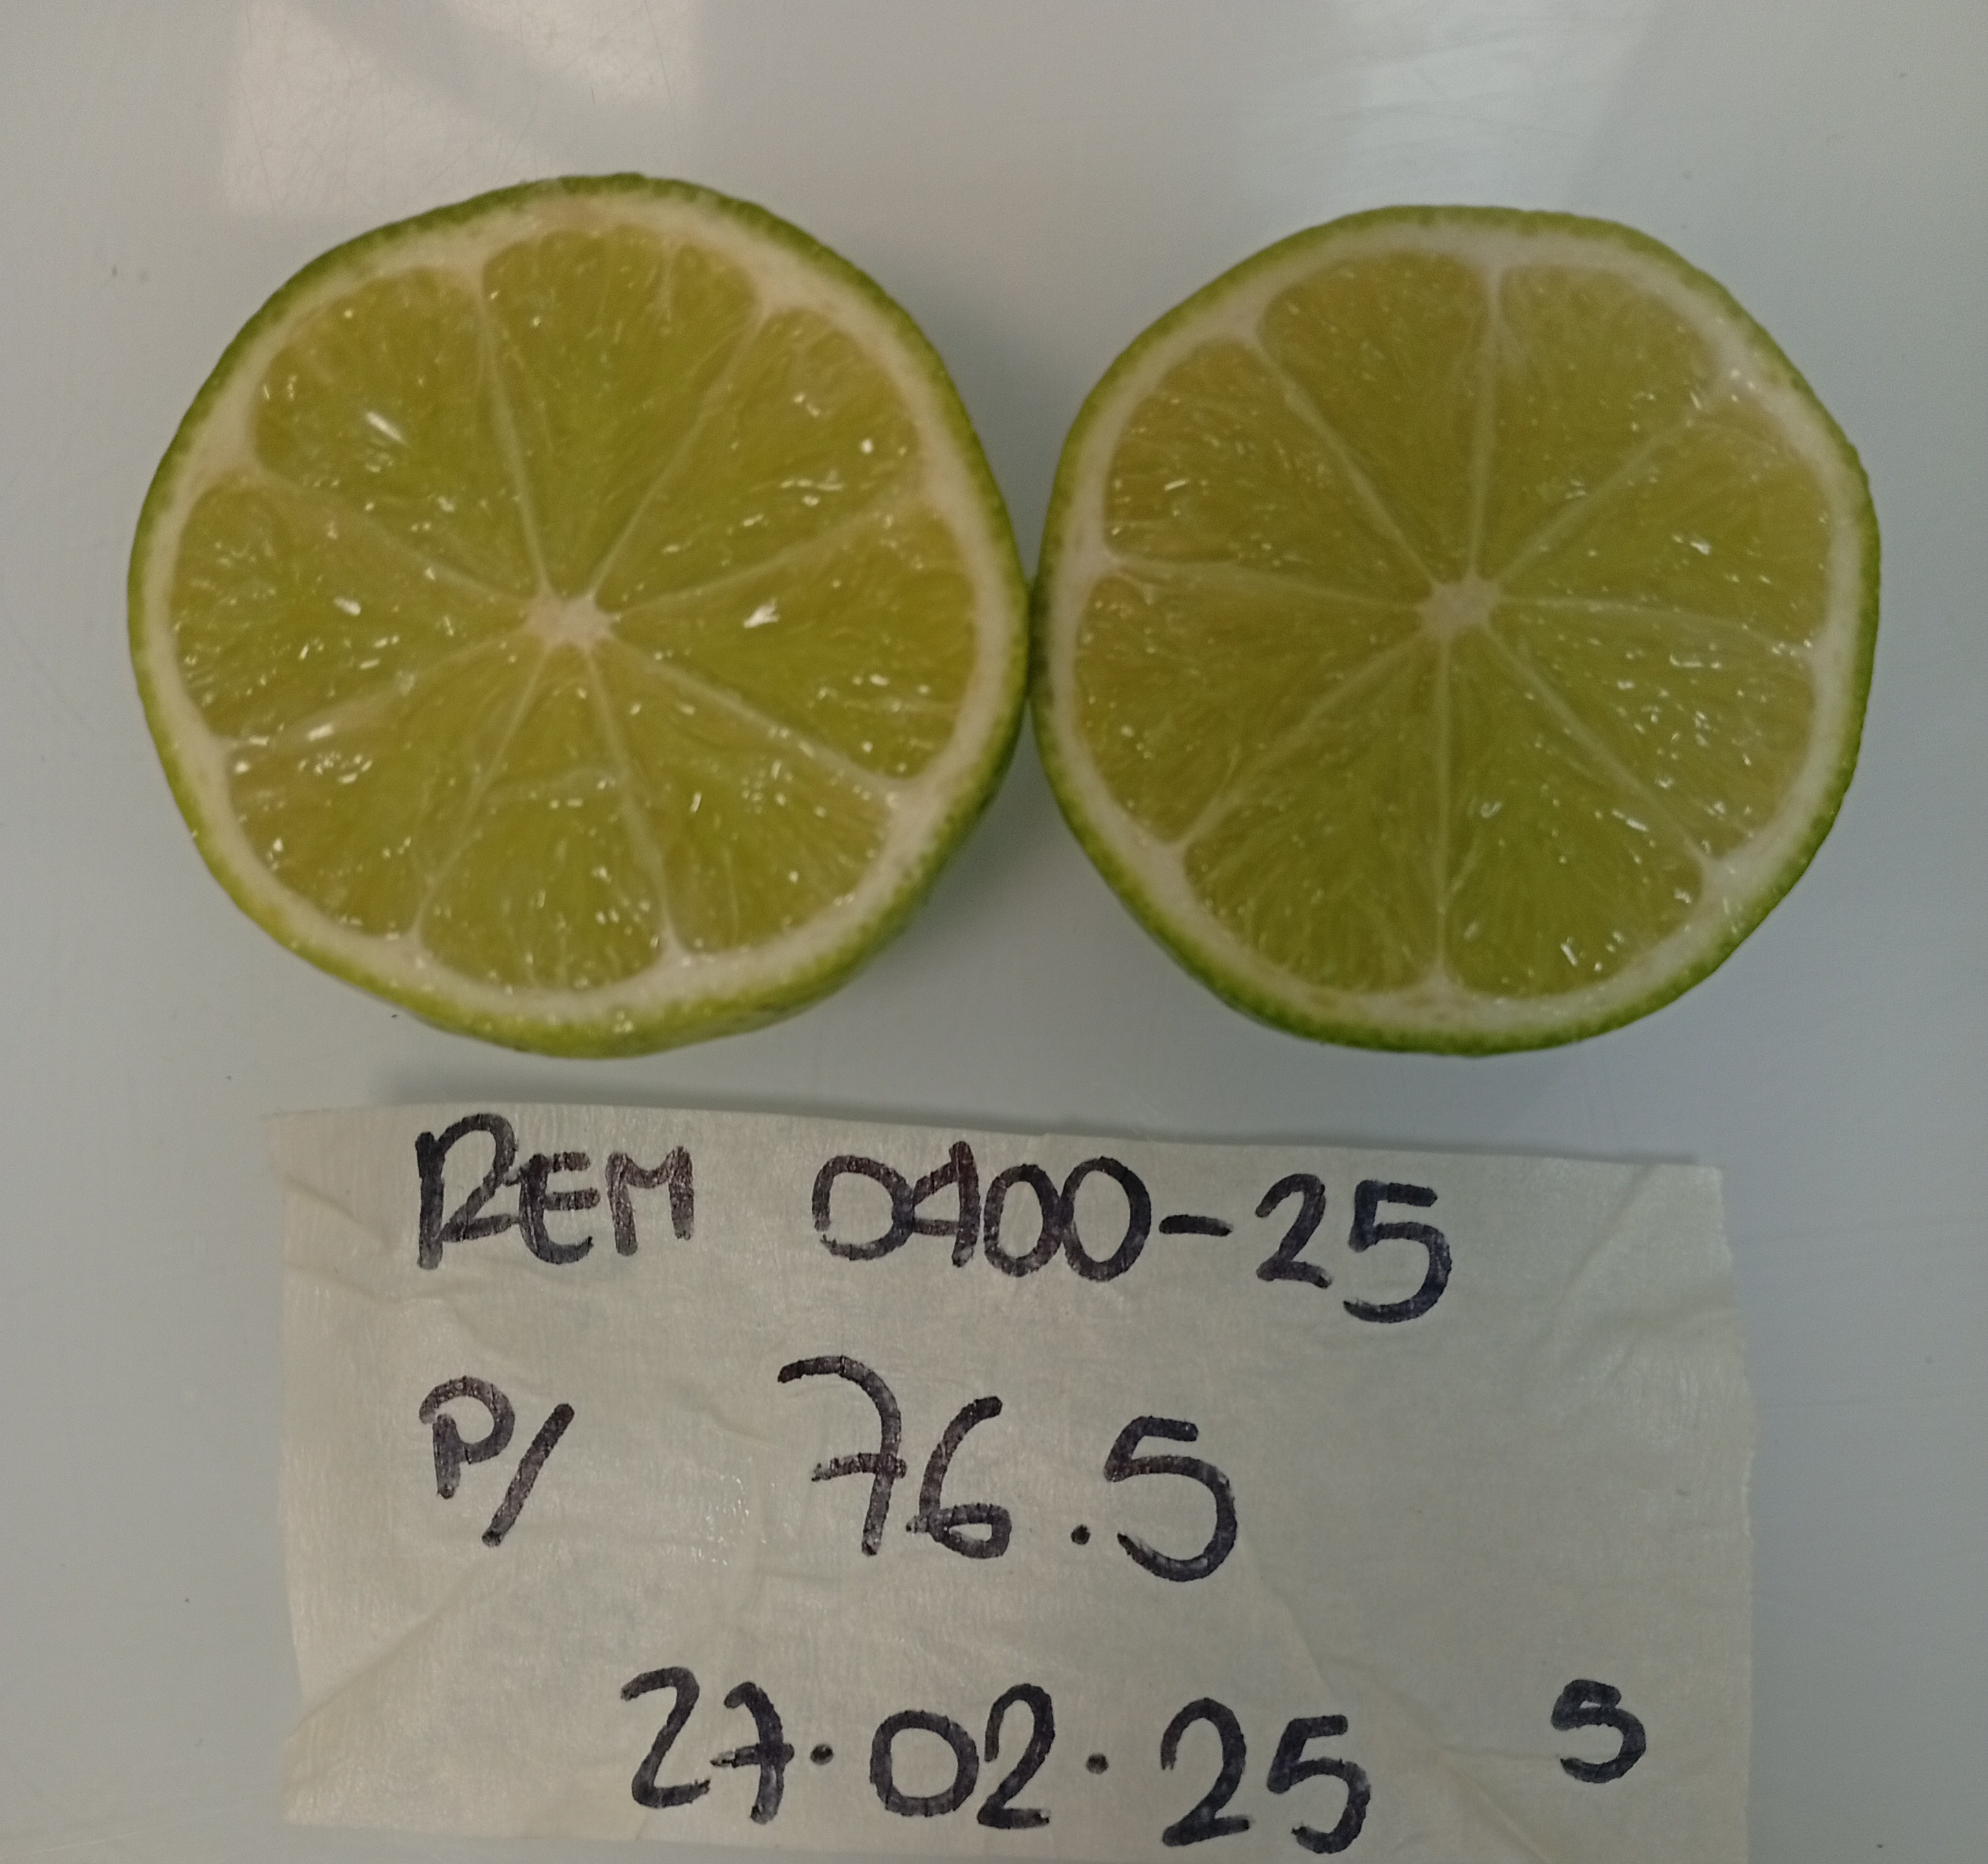 REM 0400-25
P/ 76.5
27.02.25 5